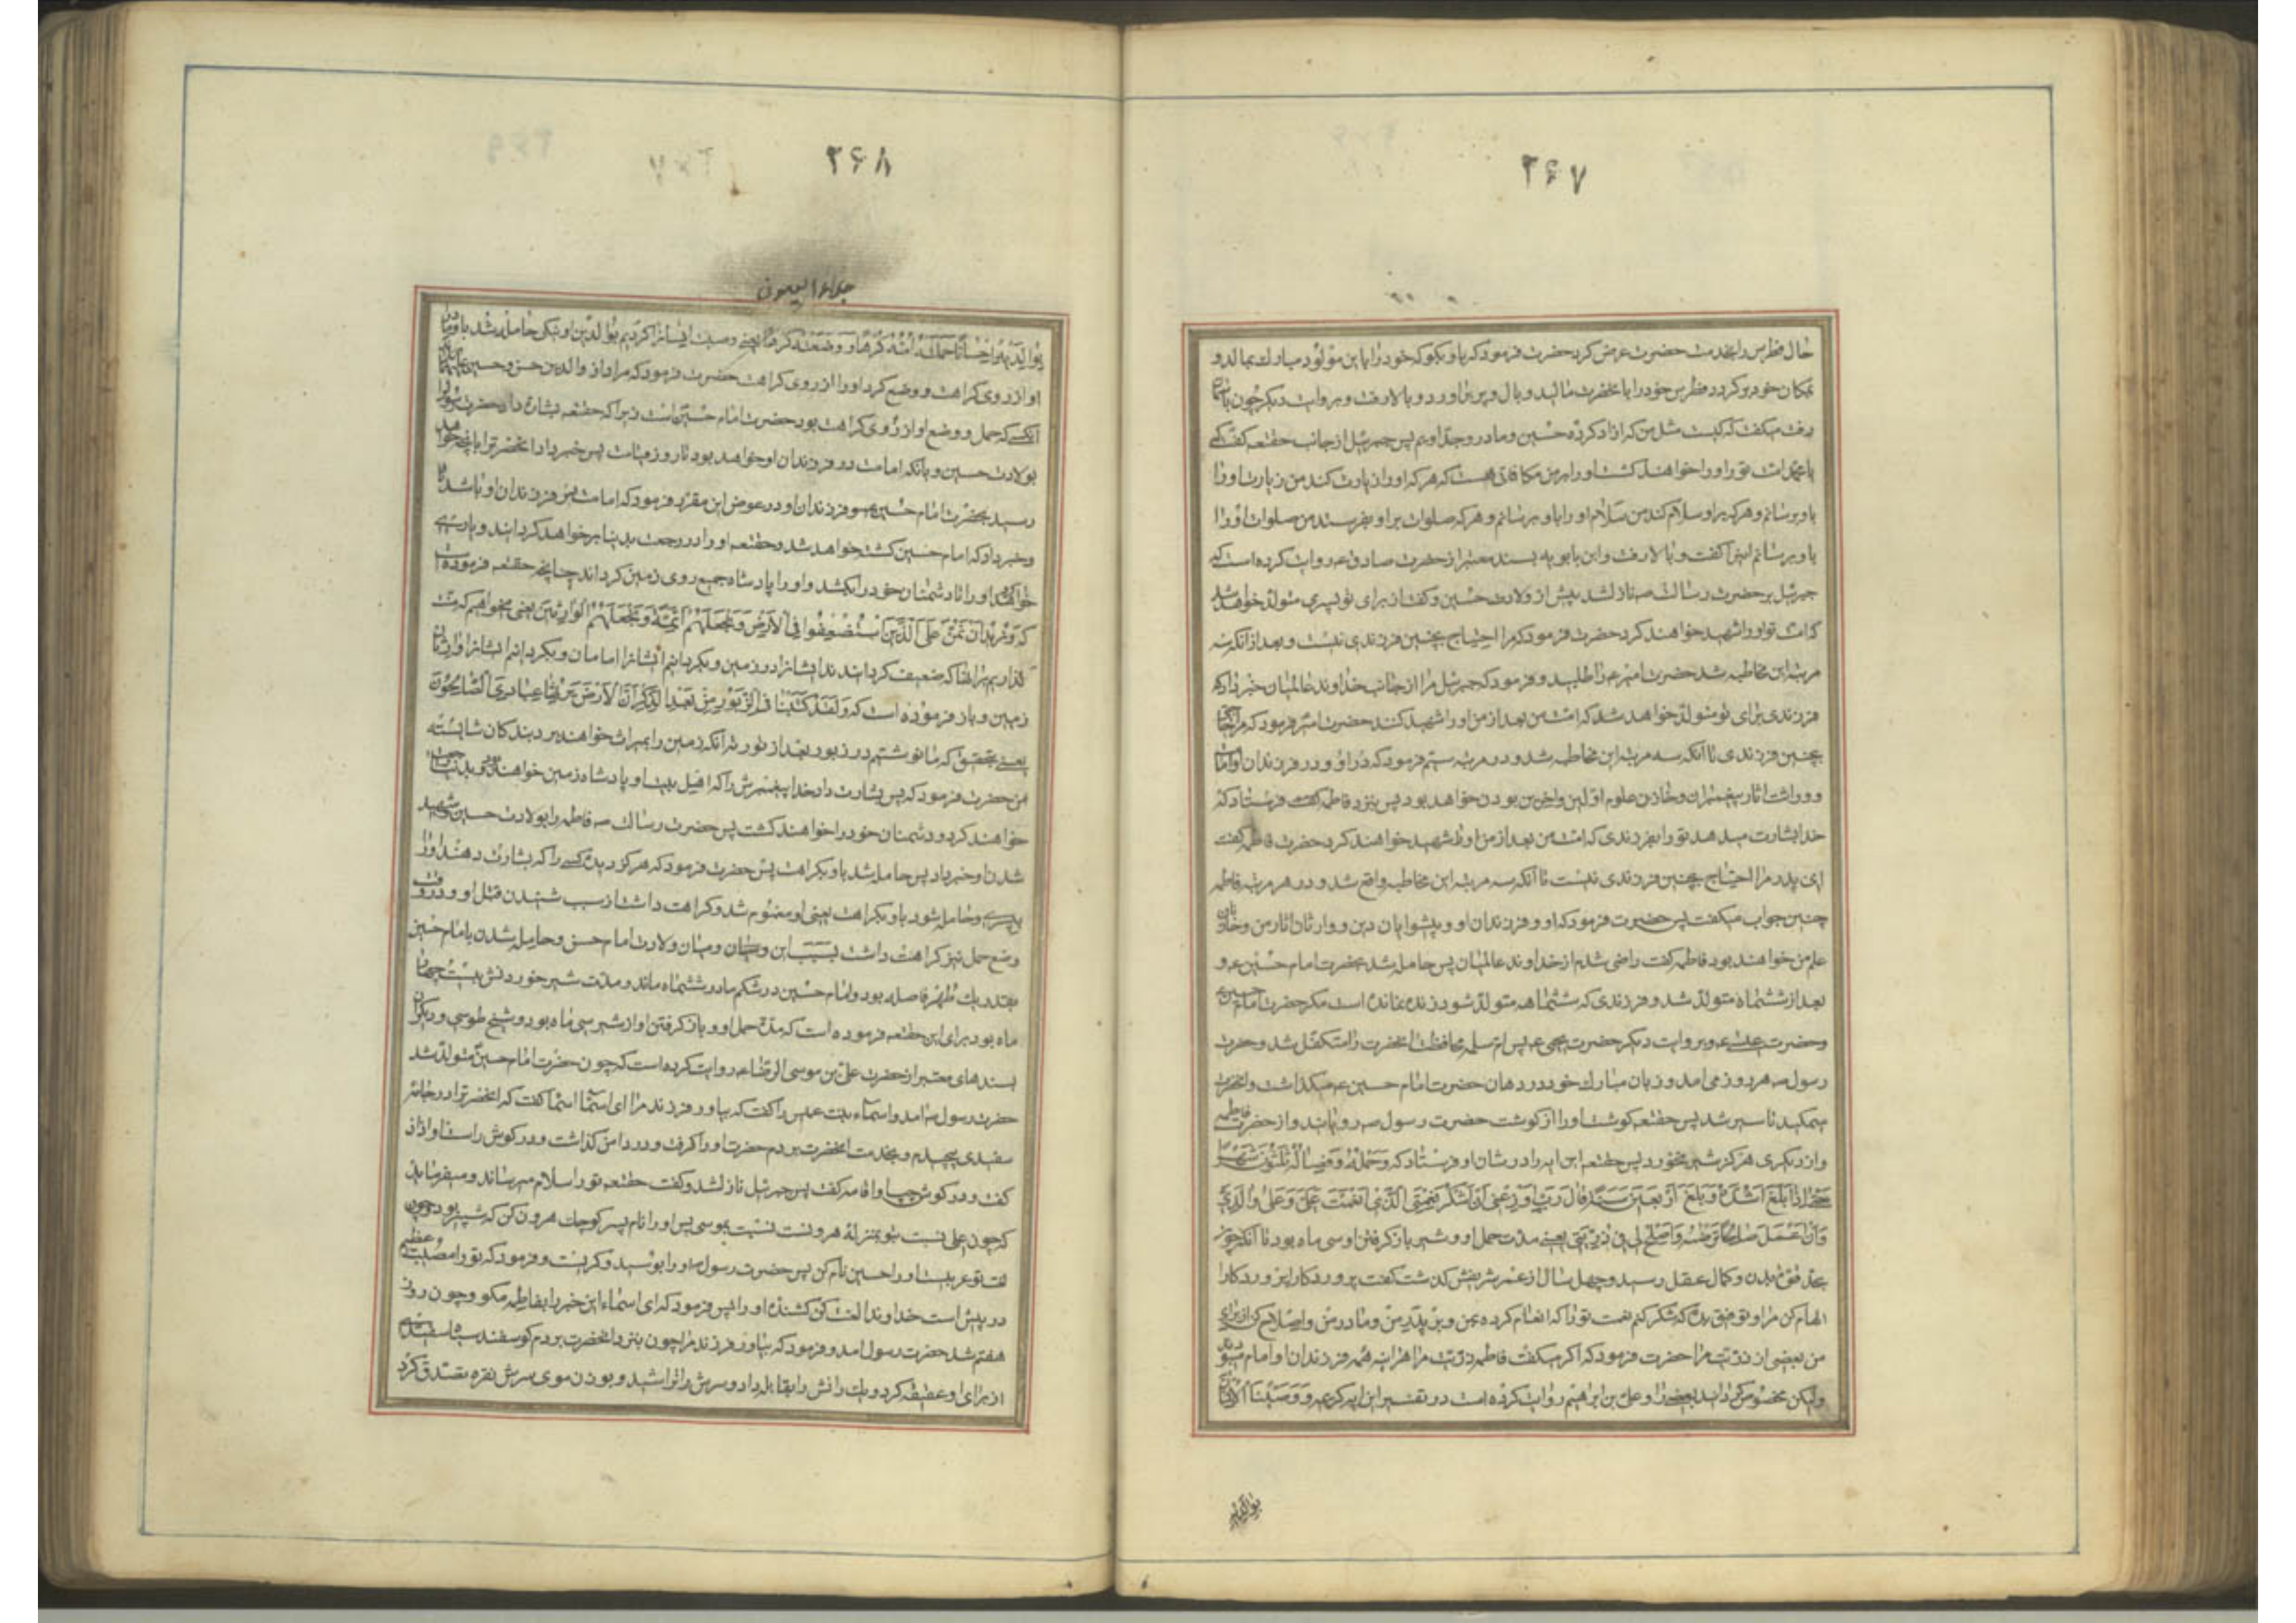 ۲۶۷
حال فطرس را بخدمت حضرت عرض کرد حضرت فرمود که باو بگو که خود را باین مولود مبارک بمالد و
بمکان خود برگردد فطرس خود را بآنحضرت مالید و بال و پر برآورد و بالا رفت و بروایت دیگر چون بآسمان
رفت میگفت که کیست مثل من که آزاد کرده حسین و مادر و جد اویم پس جبرئیل از جانب حقتعه گفت که
یا محمد امت تو او را خواهند کشت و او را بر من مکافاتی هست که هر که او را زیارت کند من زیارت او را
باو برسانم و هر که بر او سلام کند من سلام او را باو برسانم و هر که صلوات بر او بفرستد من صلوات او را
باو برسانم اینرا گفت و بالا رفت و ابن بابویه بسند معتبر از حضرت صادق ع روایت کرده است که
جبرئیل بر حضرت رسالت ص نازل شد پیش از ولادت حسین و گفت از برای تو پسری متولد خواهد شد
که امت تو او را شهید خواهند کرد حضرت فرمود که مرا احتیاج بچنین فرزندی نیست و بعد از آنکه سه
مرتبه این مخاطبه شد حضرت امیر ع را طلبید و فرمود که جبرئیل مرا از جانب خداوند عالمیان خبر داد که
فرزندی برای تو متولد خواهد شد که امت من بعد از من او را شهید کنند حضرت امیر فرمود که مرا احتیاج
بچنین فرزندی تا آنکه سه مرتبه این مخاطبه شد و در مرتبه سیم فرمود که در او و در فرزندان او امامت
و وراثت آثار پیغمبران و خازن علوم اولین و آخرین بودن خواهد بود پس بنزد فاطمه فرستاد که
خدا بشارت میدهد تو را بفرزندی که امت من بعد از من او را شهید خواهند کرد حضرت فاطمه گفت
ای پدر مرا احتیاج بچنین فرزندی نیست تا آنکه سه مرتبه این مخاطبه واقع شد و در هر مرتبه فاطمه
چنین جواب میگفت پس حضرت فرمود که او و فرزندان او و پیشوایان دین و وارثان آثار من و خازنان
علم من خواهند بود فاطمه گفت راضی شدم از خداوند عالمیان پس حامله شد بحضرت امام حسین ع و
بعد از ششماه متولد شد و فرزندی که ششماهه متولد شود زنده نمانده است مگر حضرت امام حسین
و حضرت عیسی ع و بروایت دیگر حضرت یحیی ع پس ام سلمه محافظت آنحضرت را متکفل شد و حضرت
رسول ص هر روز می آمد و زبان مبارک خود در دهان حضرت امام حسین ع میگذاشت و آنحضرت
میمکید تا سیر شد پس حقتعه گوشت او را از گوشت حضرت رسول ص رویانید و از حضرت فاطمه
و از دیگری هرگز شیر نخورد پس حقتعه این آیه را در شان او فرستاد که وَحَمْلُهُ وَفِصَالُهُ ثَلٰثُونَ شَهْرًا
حَتّٰی اِذَا بَلَغَ اَشُدَّهُ وَبَلَغَ اَرْبَعِینَ سَنَةً قَالَ رَبِّ اَوْزِعْنِی اَنْ اَشْکُرَ نِعْمَتَکَ الَّتِی اَنْعَمْتَ عَلَیَّ وَعَلٰی وَالِدَیَّ
وَاَنْ اَعْمَلَ صَالِحًا تَرْضٰیهُ وَاَصْلِحْ لِی فِی ذُرِّیَّتِی یعنی مدت حمل او و شیر باز گرفتن او سی ماه بود تا آنکه چون
بحد قوت بدن و کمال عقل رسید و چهل سال از عمر شریفش گذشت گفت پروردگارا
الهام کن مرا و توفیق بده که شکر کنم نعمت تو را که انعام کرده بمن و بر پدر من و مادر من و اصلاح کن از برای
من بعضی از ذریت مرا حضرت فرمود که اگر میگفت ذریت مرا هر آینه همه فرزندان او امام میبودند
ولیکن مخصوص گردانید بعضی را و علی بن ابراهیم روایت کرده است در تفسیر این آیه کریمه و وَصَّیْنَا الْاِنْسَانَ
بوالدیه
۲۶۸
جلاء العیون
بِوَالِدَیْهِ اِحْسَانًا حَمَلَتْهُ اُمُّهُ کُرْهًا وَوَضَعَتْهُ کُرْهًا یعنی وصیت انسان را کردیم بوالدین او نیکی حامله شد باو مادر
او از روی کراهت و وضع کرد او را از روی کراهت حضرت فرمود که مراد از والدین حسن و حسین علیهما
آنکسی که حمل و وضع او از روی کراهت بود حضرت امام حسین است زیرا که حقتعه بشارت داد حضرت رسول را
بولادت حسین و بآنکه امامت در فرزندان او خواهد بود تا روز قیامت پس خبر داد آنحضرت را بآنچه خواهد
رسید بحضرت امام حسین ع و فرزندان او در عوض این مقرر فرمود که امامت در فرزندان او باشد
و خبر داد که امام حسین کشته خواهد شد و حقتعه او را در رجعت بدنیا بر خواهد گردانید و یاری
خواهد او را تا دشمنان خود را بکشد و او را پادشاه جمیع روی زمین گرداند چنانچه حقتعه فرموده است
که وَنُرِیدُ اَنْ نَمُنَّ عَلَی الَّذِینَ اسْتُضْعِفُوا فِی الْاَرْضِ وَنَجْعَلَهُمْ اَئِمَّةً وَنَجْعَلَهُمُ الْوَارِثِینَ یعنی میخواهیم که منت
گذاریم بر آنها که ضعیف گردانیدند ایشانرا در زمین و بگردانیم ایشانرا امامان و بگردانیم ایشانرا وارثان
زمین و باز فرموده است که وَلَقَدْ کَتَبْنَا فِی الزَّبُورِ مِنْ بَعْدِ الذِّکْرِ اَنَّ الْاَرْضَ یَرِثُهَا عِبَادِیَ الصَّالِحُونَ
یعنی بتحقیق که ما نوشتیم در زبور بعد از توریة آنکه زمین را بمیراث خواهند برد بندگان شایسته
من حضرت فرمود که پس بشارت داد خدا پیغمبرش را که اهل بیت او پادشاه زمین خواهند بود و بدنیا رجعت
خواهند کرد و دشمنان خود را خواهند کشت پس حضرت رسالت ص فاطمه را بولادت حسین و شهید
شدن او خبر داد پس حامله شد باو بکراهت پس حضرت فرمود که هرگز دیده کسی را که بشارت دهند او را
پسری و حامله شود باو بکراهت یعنی او مغموم شد و کراهت داشت از سبب شنیدن قتل او و در وقت
وضع حمل نیز کراهت داشت میان ولادت امام حسن و حامله شدن بامام حسین
بقدر یک طهر فاصله بود و امام حسین در شکم مادر ششماه ماند و مدت شیر خوردنش بیست چهار
ماه بود برای این حقتعه فرموده است که مدت حمل او و باز گرفتن او از شیر سی ماه بود و شیخ طوسی و دیگران
بسندهای معتبر از حضرت علی بن موسی الرضا ع روایت کرده است که چون حضرت امام حسین متولد شد
حضرت رسول ص آمد و اسماء بنت عمیس را گفت که بیاور فرزند مرا ای اسما اسما گفت که آنحضرت را در جامه
سفیدی پیچیدم و بخدمت آنحضرت بردم حضرت او را گرفت و در دامن گذاشت و در گوش راست او اذان
گفت و در گوش چپ او اقامه گفت پس جبرئیل نازل شد و گفت حقتعه تو را سلام میرساند و میفرماید
که چون علی نسبت بتو بمنزله هرونست نسبت بموسی پس او را نام پسر کوچک هرون کن که شبیر بود و چون
لغت تو عربیست او را حسین نام کن پس حضرت رسول او را بوسید و گریست و فرمود که تو را مصیبت عظیمی
در پیش است خداوندا لعنت کن کشنده او را پس فرمود که ای اسماء این خبر را بفاطمه مگو و چون روز
هفتم شد حضرت رسول آمد و فرمود که بیاور فرزند مرا چون بنزد آنحضرت بردم گوسفند سیاه سفیدی
از برای او عقیقه کرد و یک رانش را بقابله داد و سرش را تراشید و بوزن موی سرش نقره تصدق کرد